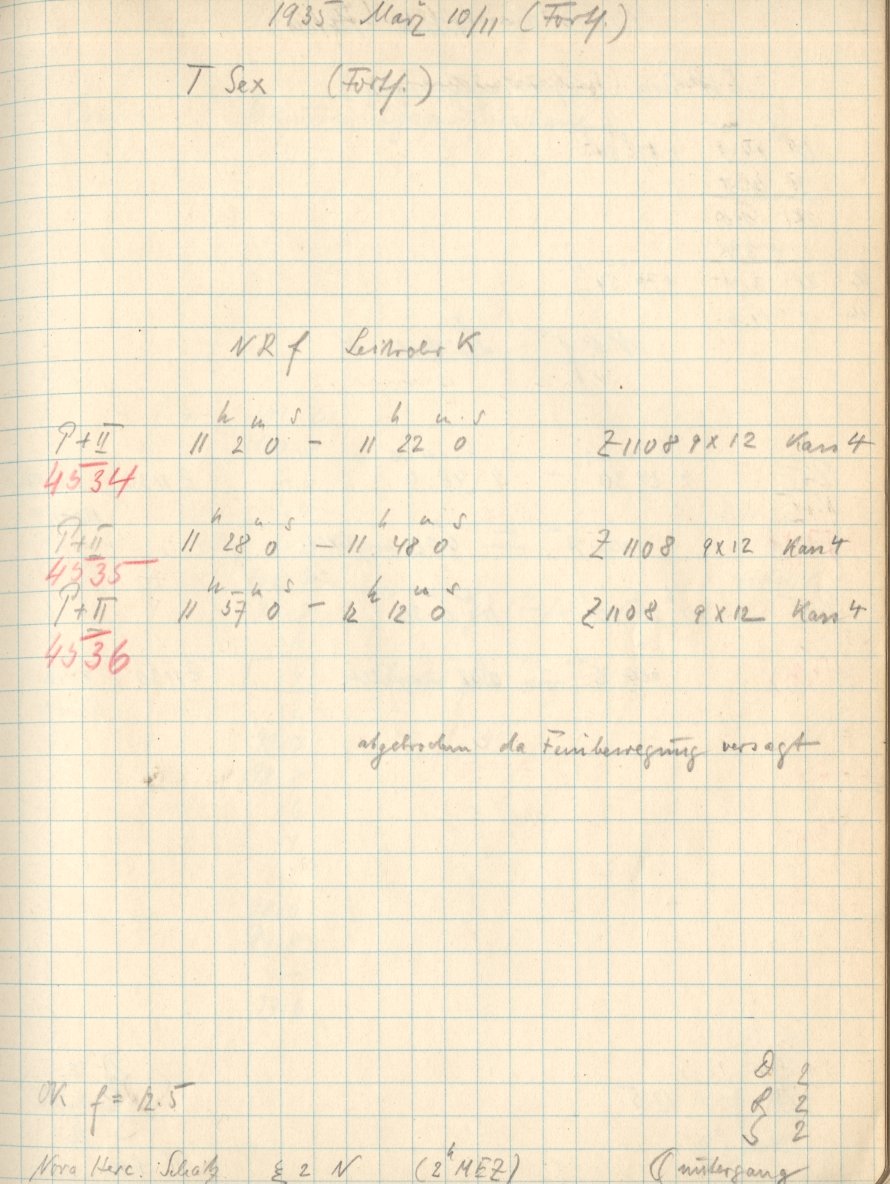 1935 März 10/11 (Forts.)
T Sex (Forts.)
NR f K
P+II 11h 2m 0s – 11h 22m 0s Z1108 9x12 Kass 4
4534
P+II 11h 28m 0s – 11h 48m 0s Z1108 9x12 Kass 4
4535
P+II 11h 57m 0s – 12h 12m 0s Z1108 9x12 Kass 4
4536
abgebrochen da Feinbewegung versagt
D 2
OK f = 12.5
R 2
S 2
Nova Herc. 2 N (2h MEZ) untergang